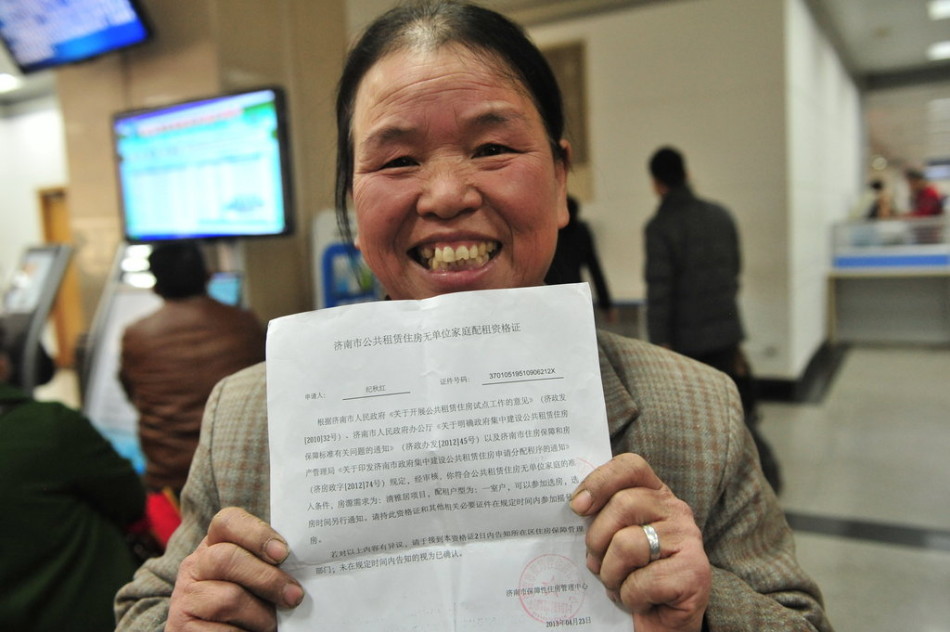 济南市公共租赁住房无单位家庭配租资格证
申请人： 纪秋红 证件号码： 37010519510906212X
根据济南市人民政府《关于开展公共租赁住房试点工作的意见》（济政发
[2010]32号）、济南市人民政府办公厅《关于明确政府集中建设公共租赁住房
保障标准有关问题的通知》（济政办发[2012]45号）以及济南市住房保障和房
产管理局《关于印发济南市政府集中建设公共租赁住房申请分配程序的通知》
（济房政字[2012]74号）规定，经审核，你符合公共租赁住房无单位家庭的租
入条件，房源需求为：清雅居项目，配租户型为：一室户，可以参加选房，选
房时间另行通知。请持此资格证和其他相关必要证件在规定时间内参加摇号
房。
若对以上内容有异议，请于接到本资格证2日内告知所在区住房保障管理
部门；未在规定时间内告知的视为已确认。
济南市保障性住房管理中心
2013年04月23日